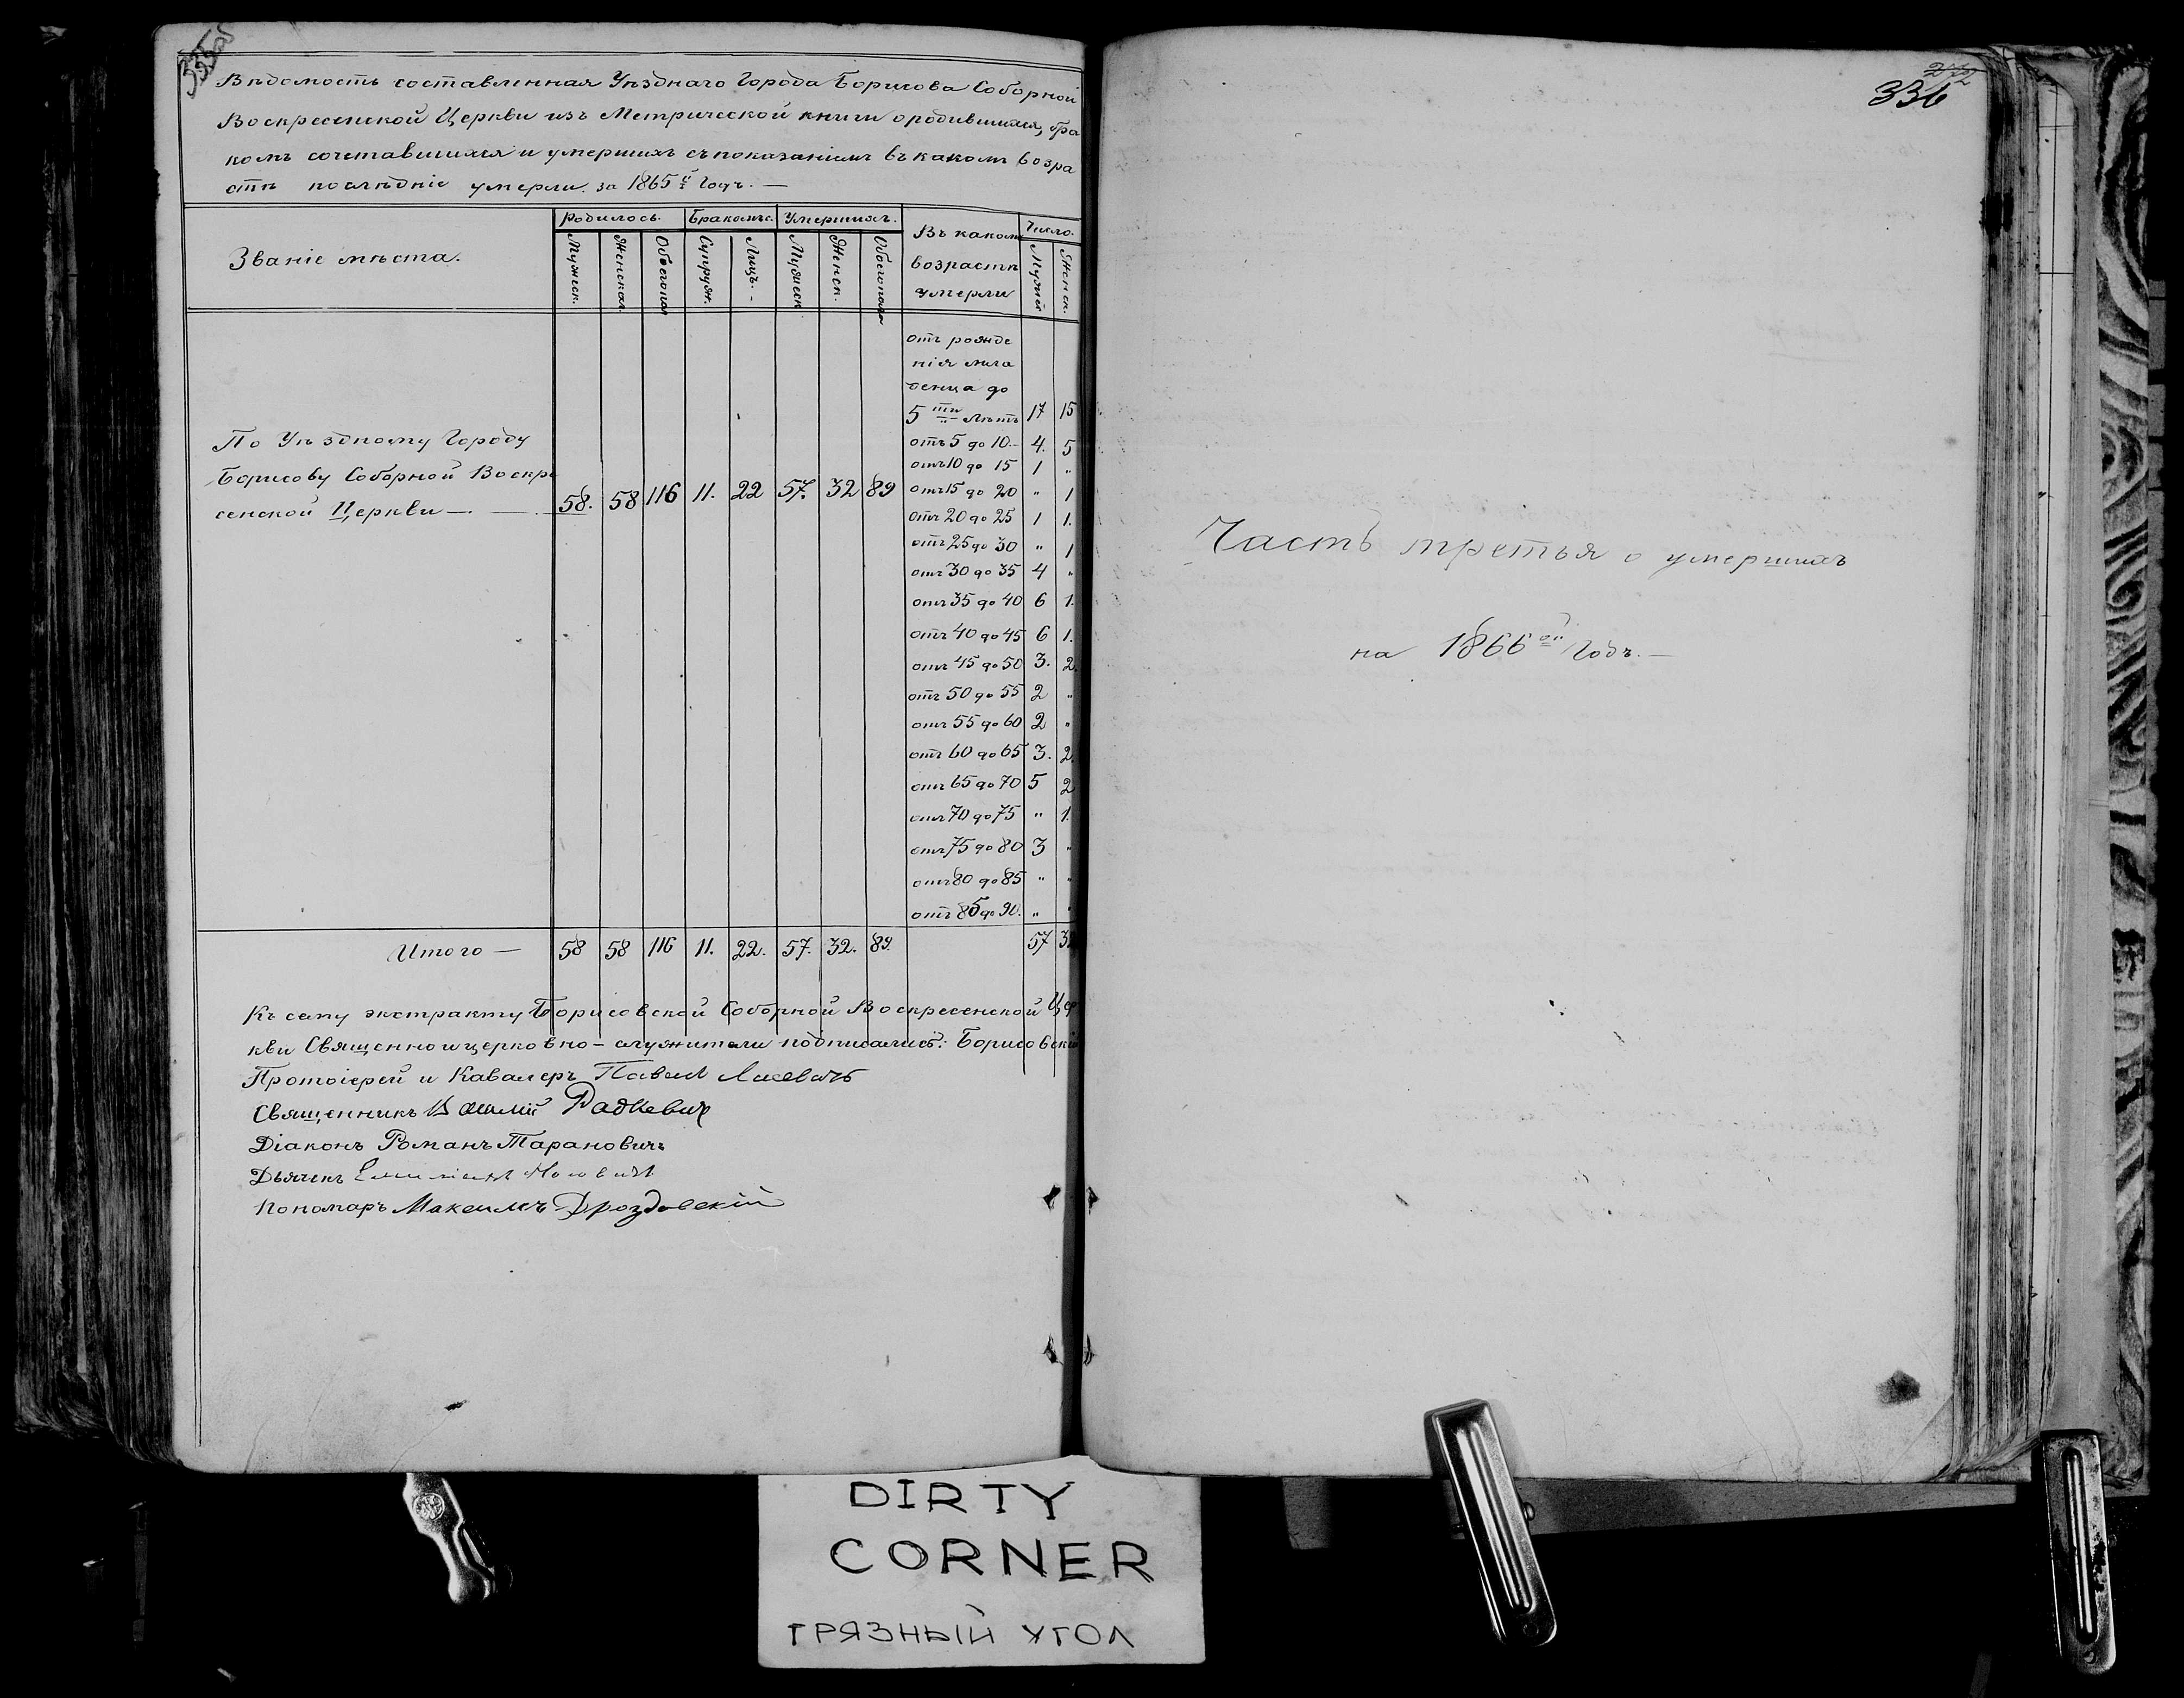 335об
Вѣдомость составленная Уѣзднаго Города Борисова Соборной
Воскресенской Церкви изъ Метрической книги о родившихся, бра
комъ сочетавшихся и умершихъ съ показаніемъ въ каком возра
стѣ послѣдніе умерли за 1865й Годъ. —
Званіе мѣста.
Родилось. Бракомъ. Умершихъ. Въ каком возрастѣ умерли Число.
Мужеск. Женскаг. Обоегопол Супруж. Лицъ. Мужеск Женск. Обоегопола Мужей Женск.
отъ рожде
нія мла
денца до
5ти Лѣтъ 17 15
отъ 5 до 10. 4. 5
отъ 10 до 15 1 „
отъ 15 до 20 „ 1
отъ 20 до 25 1 1.
отъ 25 до 30 „ 1
отъ 30 до 35 4 „
отъ 35 до 40 6 1.
отъ 40 до 45 6 1.
отъ 45 до 50 3. 2.
отъ 50 до 55 2 „
отъ 55 до 60 2 „
отъ 60 до 65 3. 2.
отъ 65 до 70 5 2
отъ 70 до 75 „ 1.
отъ 75 до 80 3 „
отъ 80 до 85 „ „
отъ 85 до 90. „ „
По Уѣздному Городу
Борисову Соборной Воскре
сенской Церкви —. — 58. 58 116 11. 22 57. 32 89
Итого — 58 58 116 11. 22. 57. 32. 89. 57 32
Къ сему экстракту Борисовской Соборной Воскресенской Цер
кви Священно и церковно – служители подписались: Борисовскій
Протоіерей и Кавалеръ Павел
Священникъ Василій Радкевич
Діаконъ Романъ Тарановичъ
Дьячекъ
Пономарь Максимъ Дроздовскій
272
336
Часть третья о умершихъ
на 1866ой Годъ. —
DIRTY
CORNER
ГРЯЗНЫЙ УГОЛ